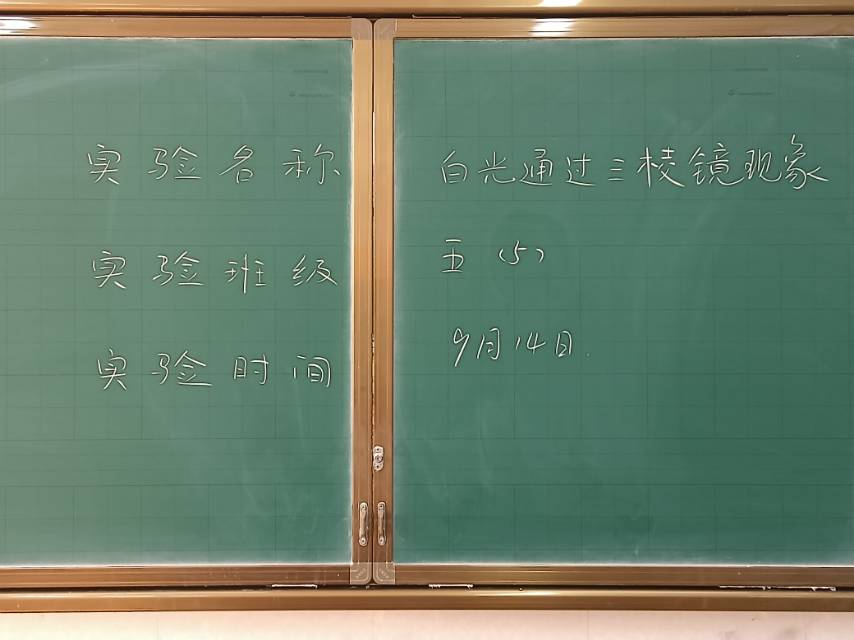 实验名称 白光通过三棱镜现象
实验班级 五(5)
实验时间 9月14日